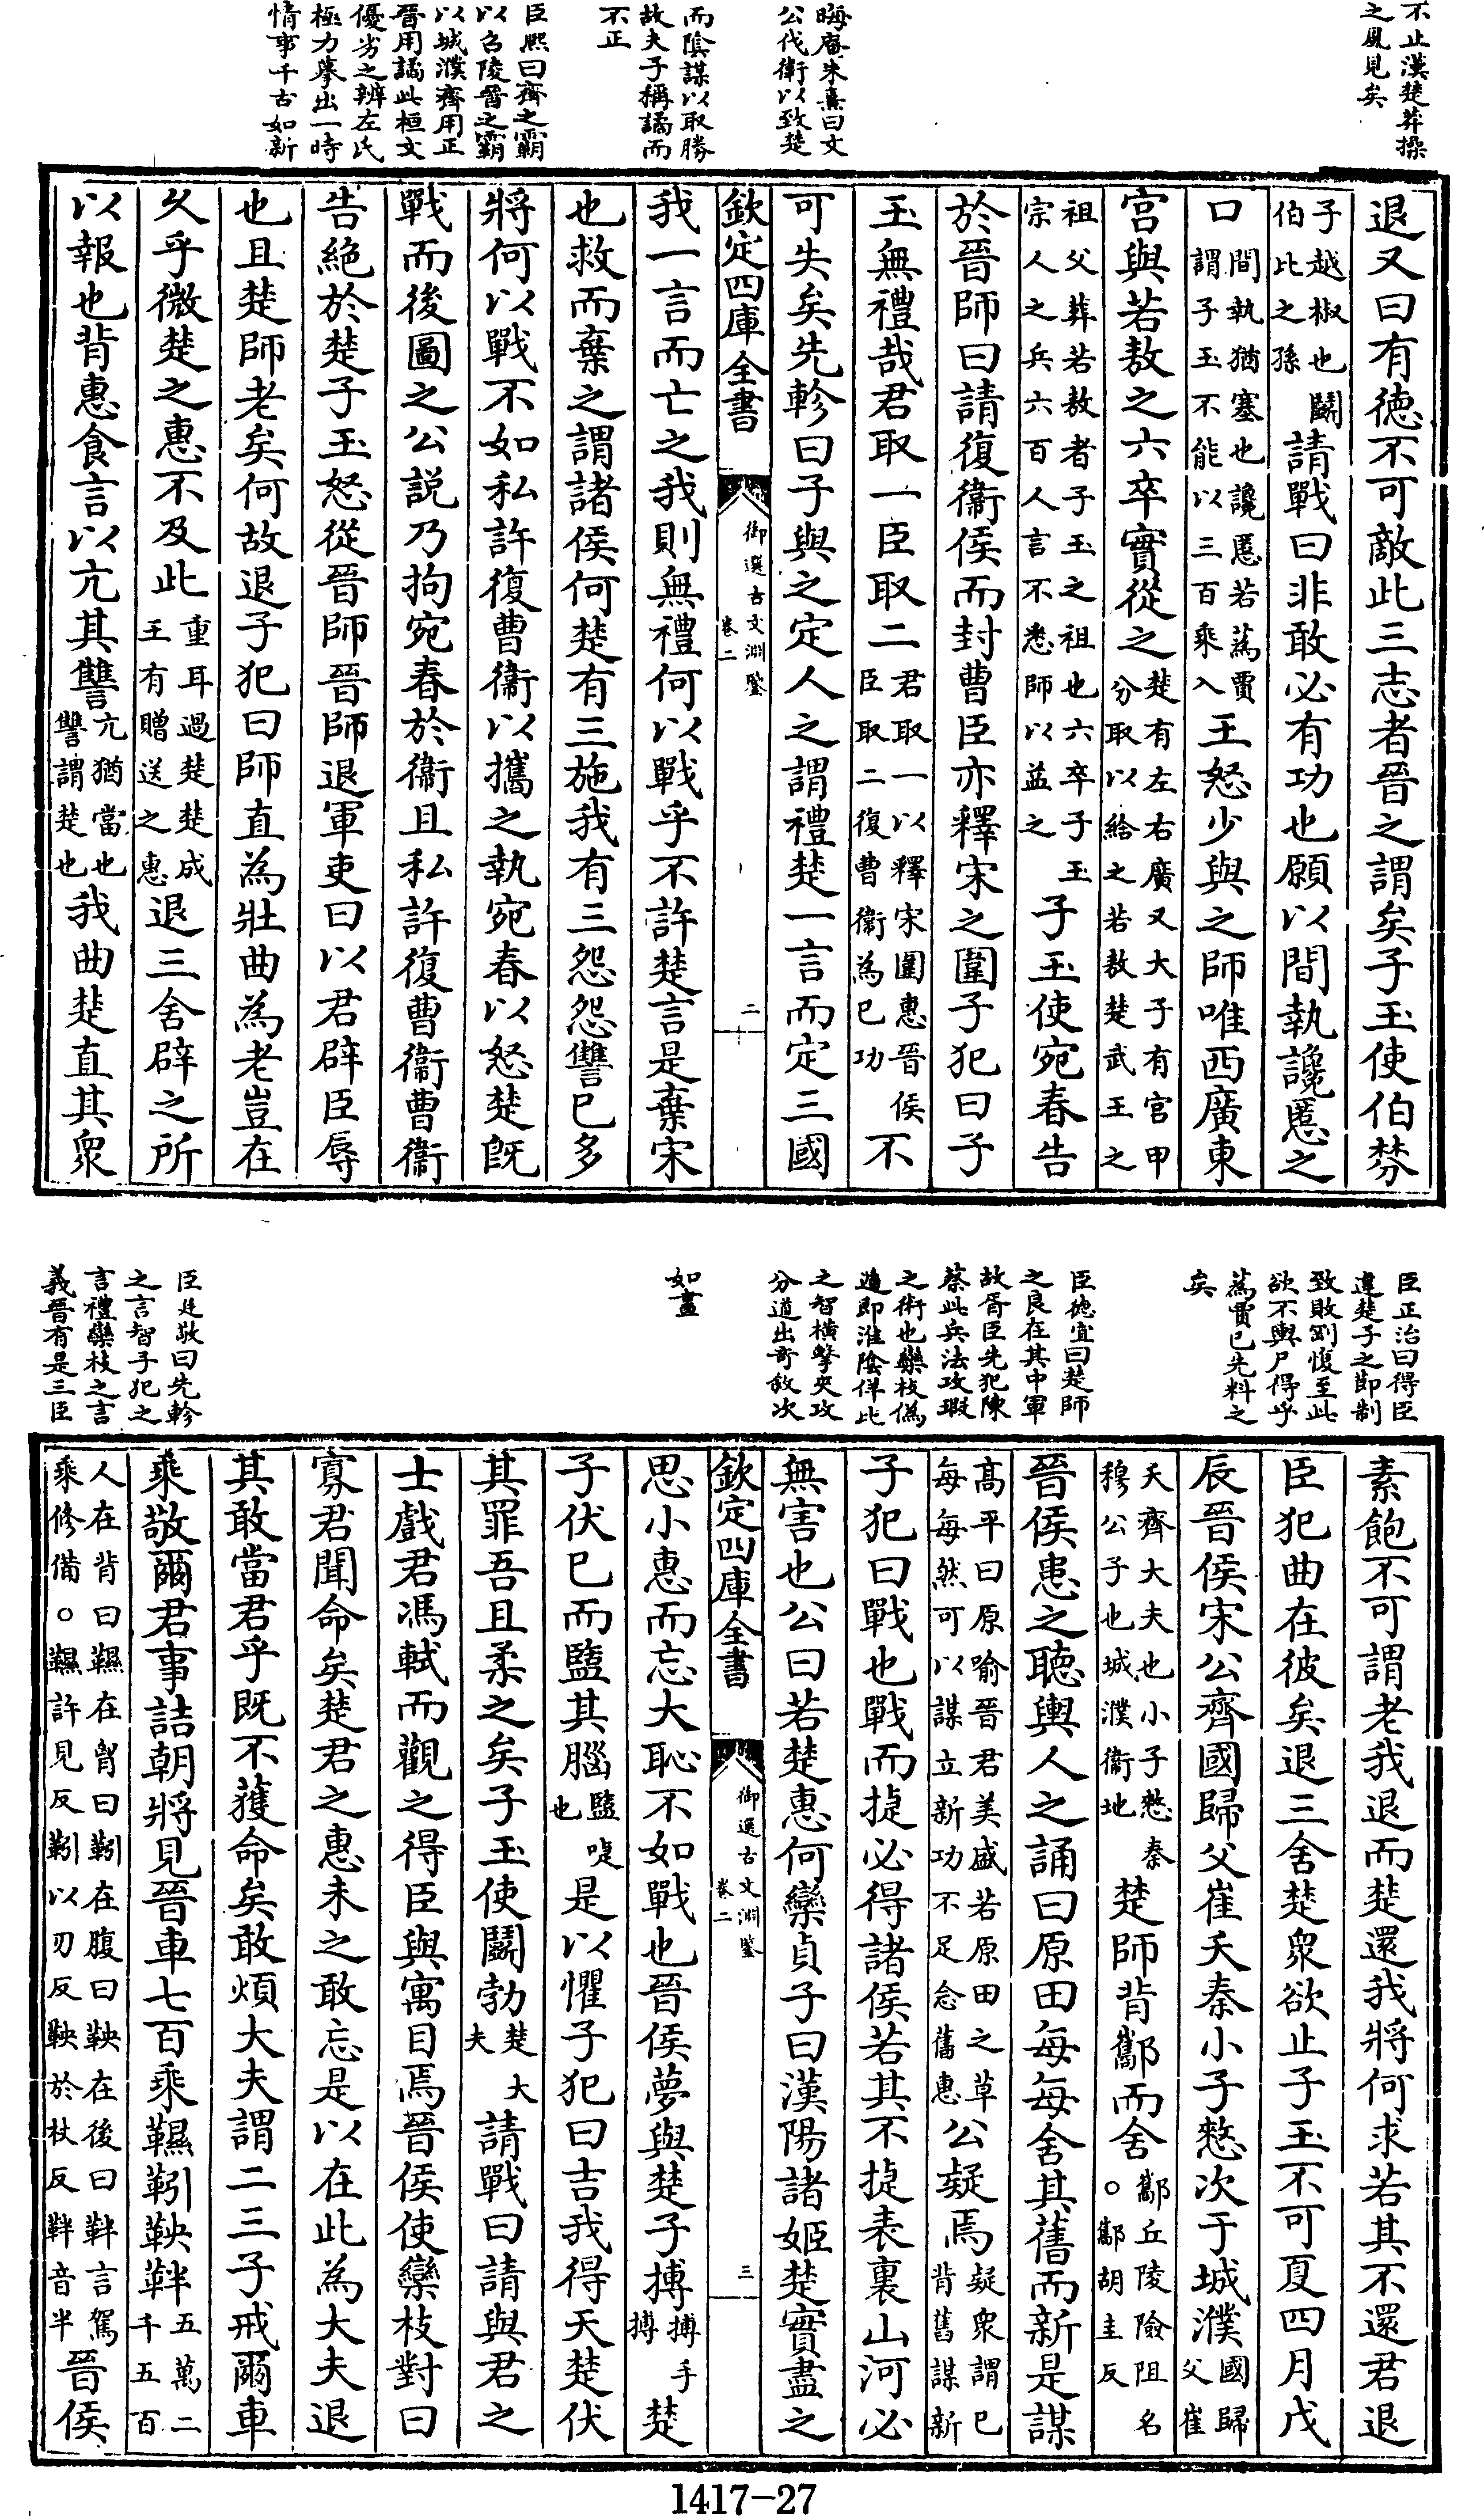 不止漢楚莽操
之風見矣
晦庵朱熹曰文
公伐衛以致楚
而陰謀以取勝
故夫子稱譎而
不正
臣熙曰齊之霸
以召陵晉之霸
以城濮齊用正
晉用譎此桓文
優劣之辨左氏
極力摹出一時
情事千古如新
退又曰有德不可敵此三志者晉之謂矣子玉使伯棼
子越椒也鬬
伯比之孫
請戰曰非敢必有功也願以間執讒慝之
口
間執猶塞也讒慝若蒍賈
謂子玉不能以三百乘入
王怒少與之師唯西廣東
宮與若敖之六卒實從之
楚有左右廣又大子有宮甲
分取以給之若敖楚武王之
祖父葬若敖者子玉之祖也六卒子玉
宗人之兵六百人言不悉師以益之
子玉使宛春告
於晉師曰請復衞侯而封曹臣亦釋宋之圍子犯曰子
玉無禮哉君取一臣取二
君取一以釋宋圍惠晉侯
臣取二復曹衞為己功
不
可失矣先軫曰子與之定人之謂禮楚一言而定三國
欽定四庫全書
御選古文淵鑒
卷二
二
我一言而亡之我則無禮何以戰乎不許楚言是棄宋
也救而棄之謂諸侯何楚有三施我有三怨怨讐已多
將何以戰不如私許復曹衞以攜之執宛春以怒楚既
戰而後圖之公説乃拘宛春於衞且私許復曹衞曹衞
告絕於楚子玉怒從晉師晉師退軍吏曰以君辟臣辱
也且楚師老矣何故退子犯曰師直為壯曲為老豈在
久乎微楚之惠不及此
重耳過楚楚成
王有贈送之惠
退三舍辟之所
以報也背惠食言以亢其讐
亢猶當也
讐謂楚也
我曲楚直其衆
臣正治曰得臣
違楚子之節制
致敗剛愎至此
欲不輿尸得乎
蒍賈已先料之
矣
臣德宜曰楚師
之良在其中軍
故胥臣先犯陳
蔡此兵法攻瑕
之術也欒枝偽
遁即淮陰佯北
之智橫擊夾攻
分道出奇敘次
如畫
臣廷敬曰先軫
之言智子犯之
言禮欒枝之言
義晉有是三臣
素飽不可謂老我退而楚還我將何求若其不還君退
臣犯曲在彼矣退三舍楚衆欲止子玉不可夏四月戊
辰晉侯宋公齊國歸父崔夭秦小子憖次于城濮
國歸
父崔
夭齊大夫也小子憖秦
穆公子也城濮衞地
楚師背酅而舍
酅丘陵險阻名
。酅胡圭反
晉侯患之聽輿人之誦曰原田每每舍其舊而新是謀
高平曰原喻晉君美盛若原田之草
每每然可以謀立新功不足念舊惠
公疑焉
疑衆謂己
背舊謀新
子犯曰戰也戰而捷必得諸侯若其不捷表裏山河必
無害也公曰若楚惠何欒貞子曰漢陽諸姬楚實盡之
欽定四庫全書
御選古文淵鑒
卷二
三
思小惠而忘大恥不如戰也晉侯夢與楚子搏
搏手
搏
楚
子伏己而盬其腦
盬啑
也
是以懼子犯曰吉我得天楚伏
其罪吾且柔之矣子玉使鬬勃
楚大
夫
請戰曰請與君之
士戲君馮軾而觀之得臣與寓目焉晉侯使欒枝對曰
寡君聞命矣楚君之惠未之敢忘是以在此為大夫退
其敢當君乎既不獲命矣敢煩大夫謂二三子戒爾車
乘敬爾君事詰朝將見晉車七百乘韅靷鞅靽
五萬二
千五百
人在背曰韅在胷曰靷在腹曰鞅在後曰靽言駕
乘修備。韅許見反靷以刃反鞅於杖反靽音半
晉侯
1417-27